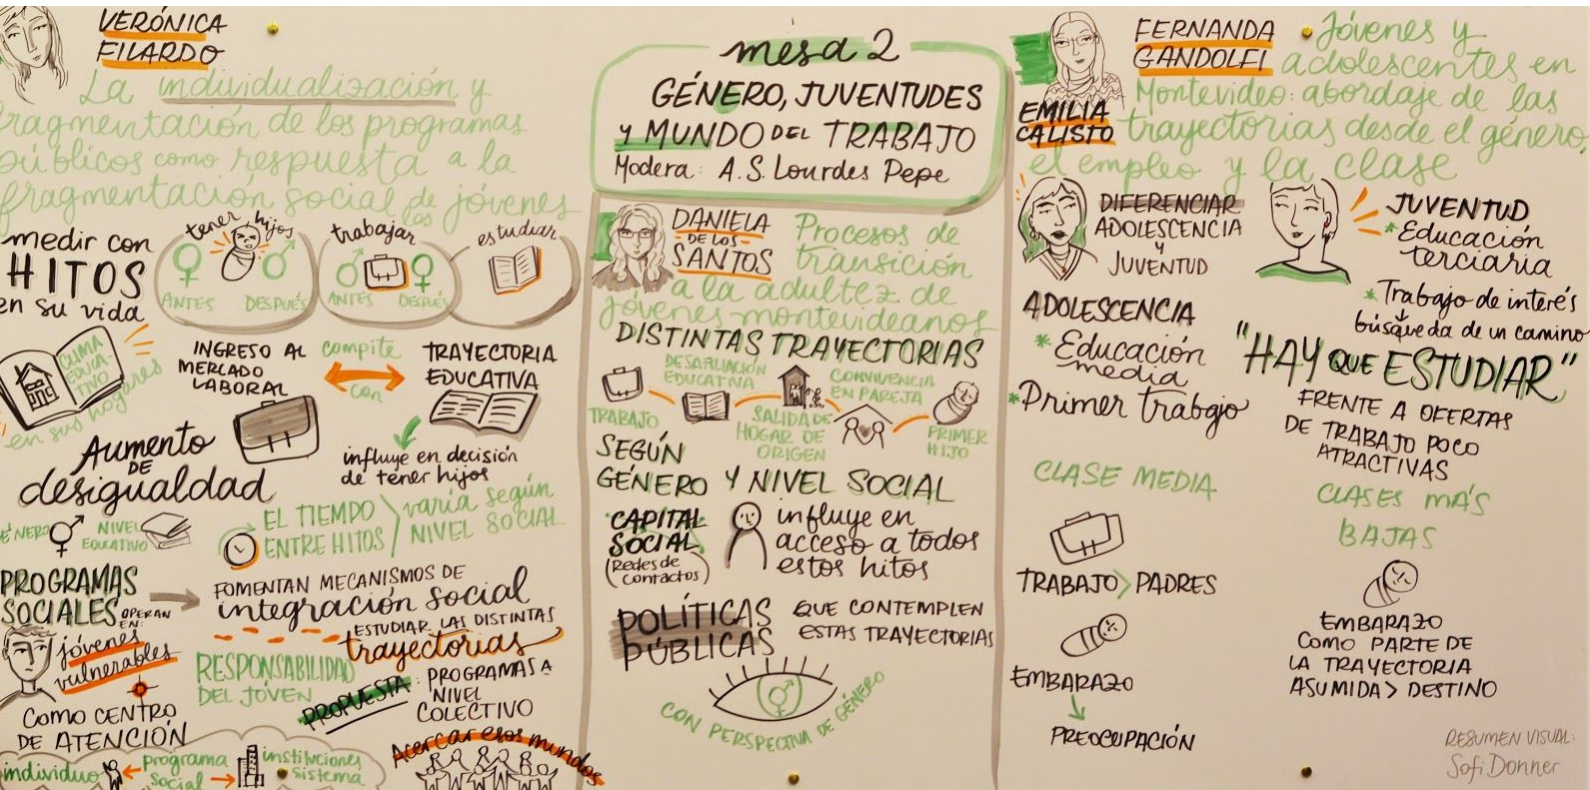 VERÓNICA
FILARDO
La individualización y
fragmentación de los programas
públicos como respuesta a la
fragmentación social de los jóvenes
medir con
HITOS
en su vida
tener hijos
ANTES DESPUÉS
trabajar
ANTES DESPUÉS
estudiar
CLIMA
EDUCA-
TIVO
en sus hogares
INGRESO AL
MERCADO
LABORAL
compite
con
TRAYECTORIA
EDUCATIVA
influye en decisión
de tener hijos
Aumento
DE
desigualdad
GÉNERO
NIVEL
EDUCATIVO
EL TIEMPO
ENTRE HITOS
varía según
NIVEL SOCIAL
PROGRAMAS
SOCIALES
OPERAN
EN:
jóvenes
vulnerables
COMO CENTRO
DE ATENCIÓN
FOMENTAN MECANISMOS DE
integración social
ESTUDIAR LAS DISTINTAS
trayectorias
RESPONSABILIDAD
DEL JOVEN
PROPUESTA: PROGRAMAS A
NIVEL
COLECTIVO
individuo
programa
social
instituciones
sistema
Acercar esos mundos
mesa 2
GÉNERO, JUVENTUDES
Y MUNDO DEL TRABAJO
Modera: A.S. Lourdes Pepe
DANIELA
DE LOS
SANTOS
Procesos de
transición
a la adultez de
jóvenes montevideanos
DISTINTAS TRAYECTORIAS
TRABAJO
DESAFILIACIÓN
EDUCATIVA
SALIDA DE
HOGAR DE
ORIGEN
CONVIVENCIA
EN PAREJA
PRIMER
HIJO
SEGÚN
GÉNERO Y NIVEL SOCIAL
CAPITAL
SOCIAL
(Redes de
contactos)
influye en
acceso a todos
estos hitos
POLÍTICAS
PÚBLICAS
QUE CONTEMPLEN
ESTAS TRAYECTORIAS
CON PERSPECTIVA DE GÉNERO
FERNANDA
GANDOLFI
EMILIA
CALISTO
Jóvenes y
adolescentes en
Montevideo: abordaje de las
trayectorias desde el género,
el empleo y la clase
DIFERENCIAR
ADOLESCENCIA
Y
JUVENTUD
ADOLESCENCIA
* Educación
media
* Primer trabajo
JUVENTUD
* Educación
terciaria
* Trabajo de interés
búsqueda de un camino
"HAY QUE ESTUDIAR"
FRENTE A OFERTAS
DE TRABAJO POCO
ATRACTIVAS
CLASE MEDIA
TRABAJO > PADRES
EMBARAZO
PREOCUPACIÓN
CLASES MÁS
BAJAS
EMBARAZO
COMO PARTE DE
LA TRAYECTORIA
ASUMIDA > DESTINO
RESUMEN VISUAL:
Sofi Donner